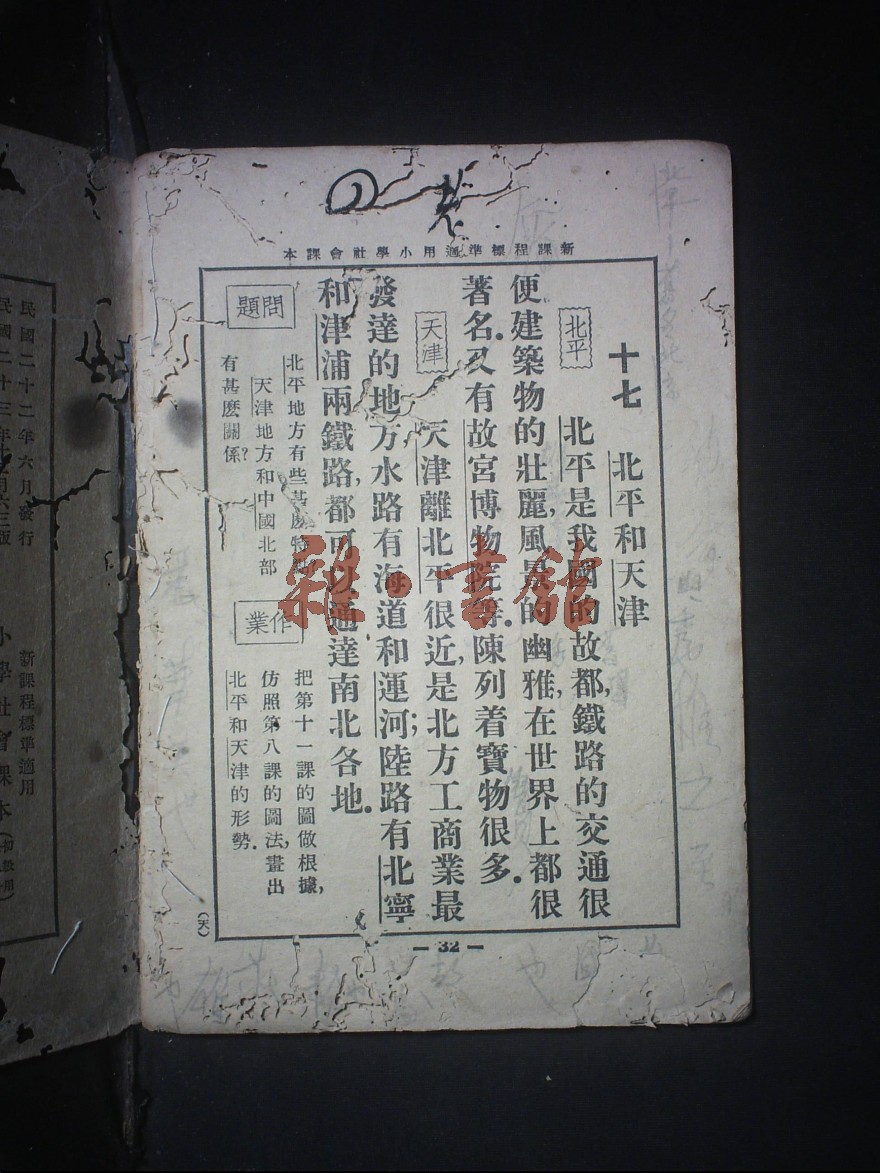 新課程標準適用小學社會課本
十七　北平和天津
北平
北平是我國的故都,鐵路的交通很
便,建築物的壯麗,風景的幽雅,在世界上都很
著名.又有故宮博物院等,陳列着寶物很多.
天津
天津離北平很近,是北方工商業最
發達的地方,水路有海道和運河;陸路有北寧
和津浦兩鐵路,都可以通達南北各地.
問題
北平地方有些甚麼特點
天津地方和中國北部
有甚麼關係?
作業
把第十一課的圖做根據,
仿照第八課的圖法,畫出
北平和天津的形勢.
(天)
— 32 —
雜·書館
新課程標準適用
小學社會課本
民國二十二年六月發行
民國二十三年
六三版